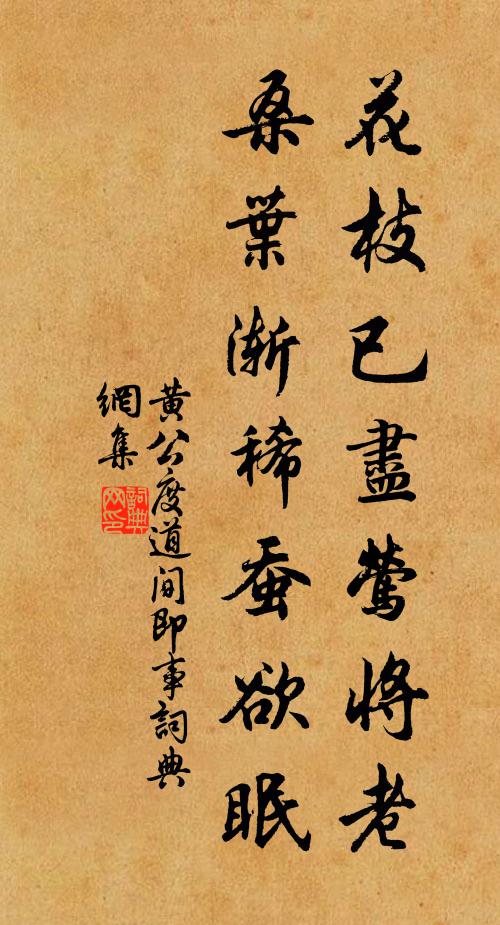 花枝已盡鶯將老
桑葉漸稀蚕欲眠
黃公度道間即事詞典
網集
詞典網印